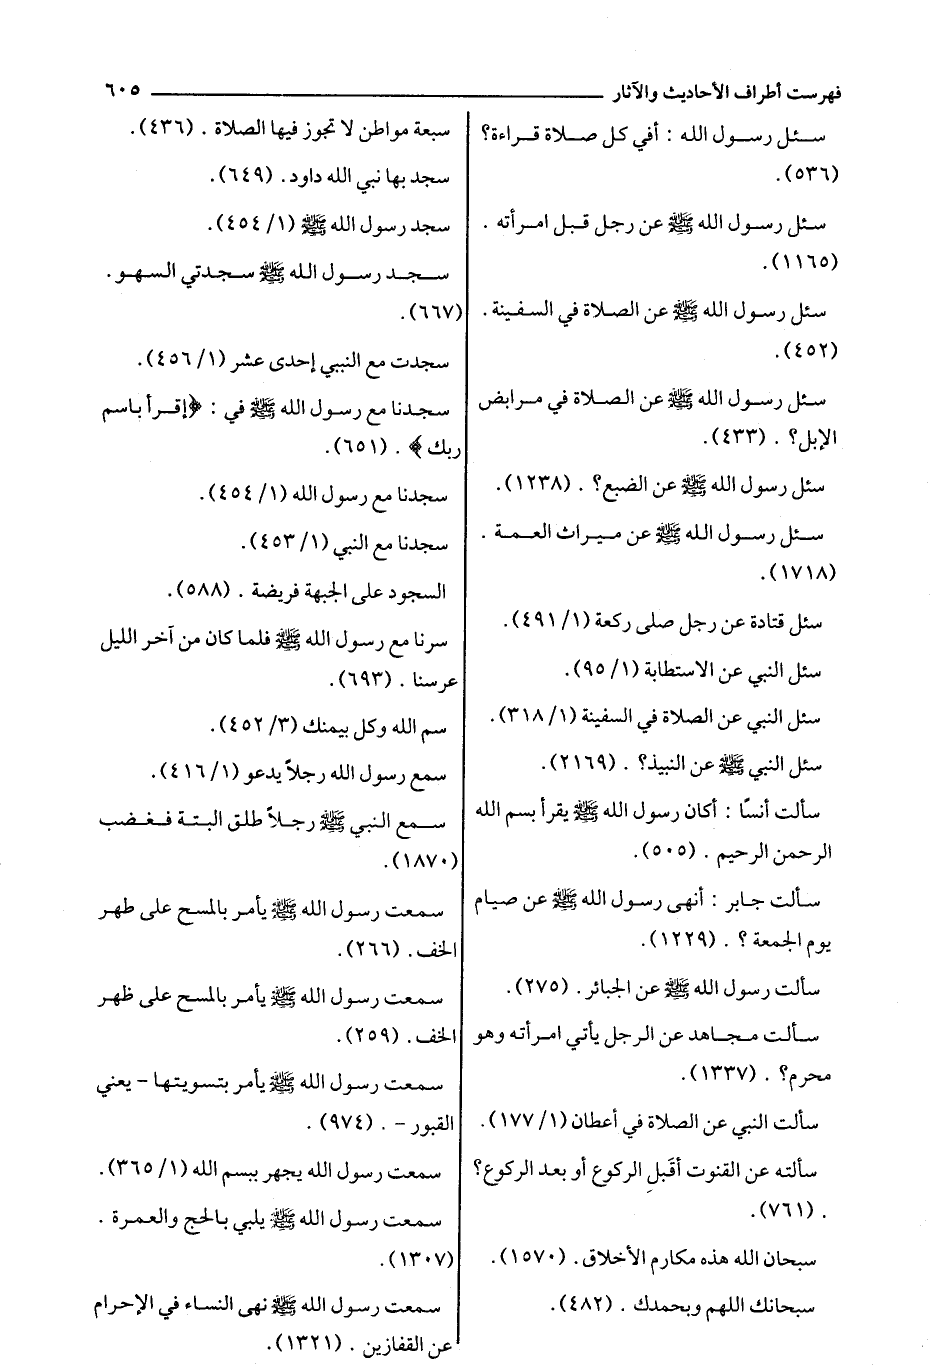 فهرست أطراف الأحاديث والآثار ٦٠٥
سئل رسول الله : أفي كل صلاة قراءة؟
(٥٣٦).
سئل رسول الله ﷺ عن رجل قبل امرأته .
(١١٦٥).
سئل رسول الله ﷺ عن الصلاة في السفينة .
(٤٥٢).
سئل رسول الله ﷺ عن الصلاة في مرابض
الإبل؟ . (٤٣٣).
سئل رسول الله ﷺ عن الضبع؟ . (١٢٣٨).
سئل رسول الله ﷺ عن ميراث العمة .
(١٧١٨).
سئل قتادة عن رجل صلى ركعة (١/ ٤٩١).
سئل النبي عن الاستطابة (١/ ٩٥).
سئل النبي عن الصلاة في السفينة (١/ ٣١٨).
سئل النبي ﷺ عن النبيذ؟ . (٢١٦٩).
سألت أنسًا : أكان رسول الله ﷺ يقرأ بسم الله
الرحمن الرحيم . (٥٠٥).
سألت جابر : أنهى رسول الله ﷺ عن صيام
يوم الجمعة ؟ . (١٢٢٩).
سألت رسول الله ﷺ عن الجبائر . (٢٧٥).
سألت مجاهد عن الرجل يأتي امرأته وهو
محرم؟ . (١٣٣٧).
سألت النبي عن الصلاة في أعطان (١/ ١٧٧).
سألته عن القنوت أقَبلِ الركوع أو بعد الركوع؟
. (٧٦١).
سبحان الله هذه مكارم الأخلاق . (١٥٧٠).
سبحانك اللهم وبحمدك . (٤٨٢).
سبعة مواطن لا تجوز فيها الصلاة . (٤٣٦).
سجد بها نبي الله داود . (٦٤٩).
سجد رسول الله ﷺ (١/ ٤٥٤).
سجد رسول الله ﷺ سجدتي السهو .
(٦٦٧).
سجدت مع النبي إحدى عشر (١/ ٤٥٦).
سجدنا مع رسول الله ﷺ في : ﴿إقرأ باسم
ربك﴾ . (٦٥١).
سجدنا مع رسول الله (١/ ٤٥٤).
سجدنا مع النبي (١/ ٤٥٣).
السجود على الجبهة فريضة . (٥٨٨).
سرنا مع رسول الله ﷺ فلما كان من آخر الليل
عرسنا . (٦٩٣).
سم الله وكل بيمنك (٣/ ٤٥٢).
سمع رسول الله رجلاً يدعو (١/ ٤١٦).
سمع النبي ﷺ رجلاً طلق البتة فغضب
(١٨٧٠).
سمعت رسول الله ﷺ يأمر بالمسح على طهر
الخف . (٢٦٦).
سمعت رسول الله ﷺ يأمر بالمسح على ظهر
الخف . (٢٥٩).
سمعت رسول الله ﷺ يأمر بتسويتها - يعني
القبور - . (٩٧٤) .
سمعت رسول الله يجهر ببسم الله (١/ ٣٦٥).
سمعت رسول الله ﷺ يلبي بالحج والعمرة .
(١٣٠٧).
سمعت رسول الله ﷺ نهى النساء في الإحرام
عن القفازين . (١٣٢١).